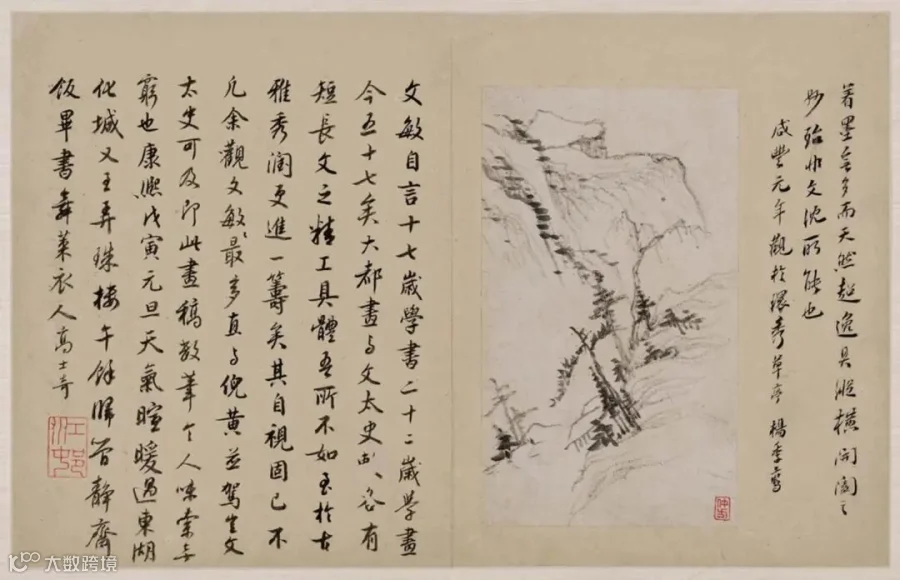 著墨無多而天然超逸具縱橫開闔之
妙殆非文沈所能也
咸豐元年觀於環秀草亭 楊季鸞
文敏自言十七歲學書二十二歲學畫
今五十七矣大都畫与文太史較各有
短長文之精工具體吾所不如至於古
雅秀潤更進一籌矣其自視固已不
凡余觀文敏最多直与倪黃並駕豈文
太史可及即此畫稿數筆令人味索無
窮也康熙戊寅元旦天氣暄暖過東湖
化城又至弄珠樓午餘歸簡靜齋
飯畢書舞萊衣人高士奇
江邨
大数跨境